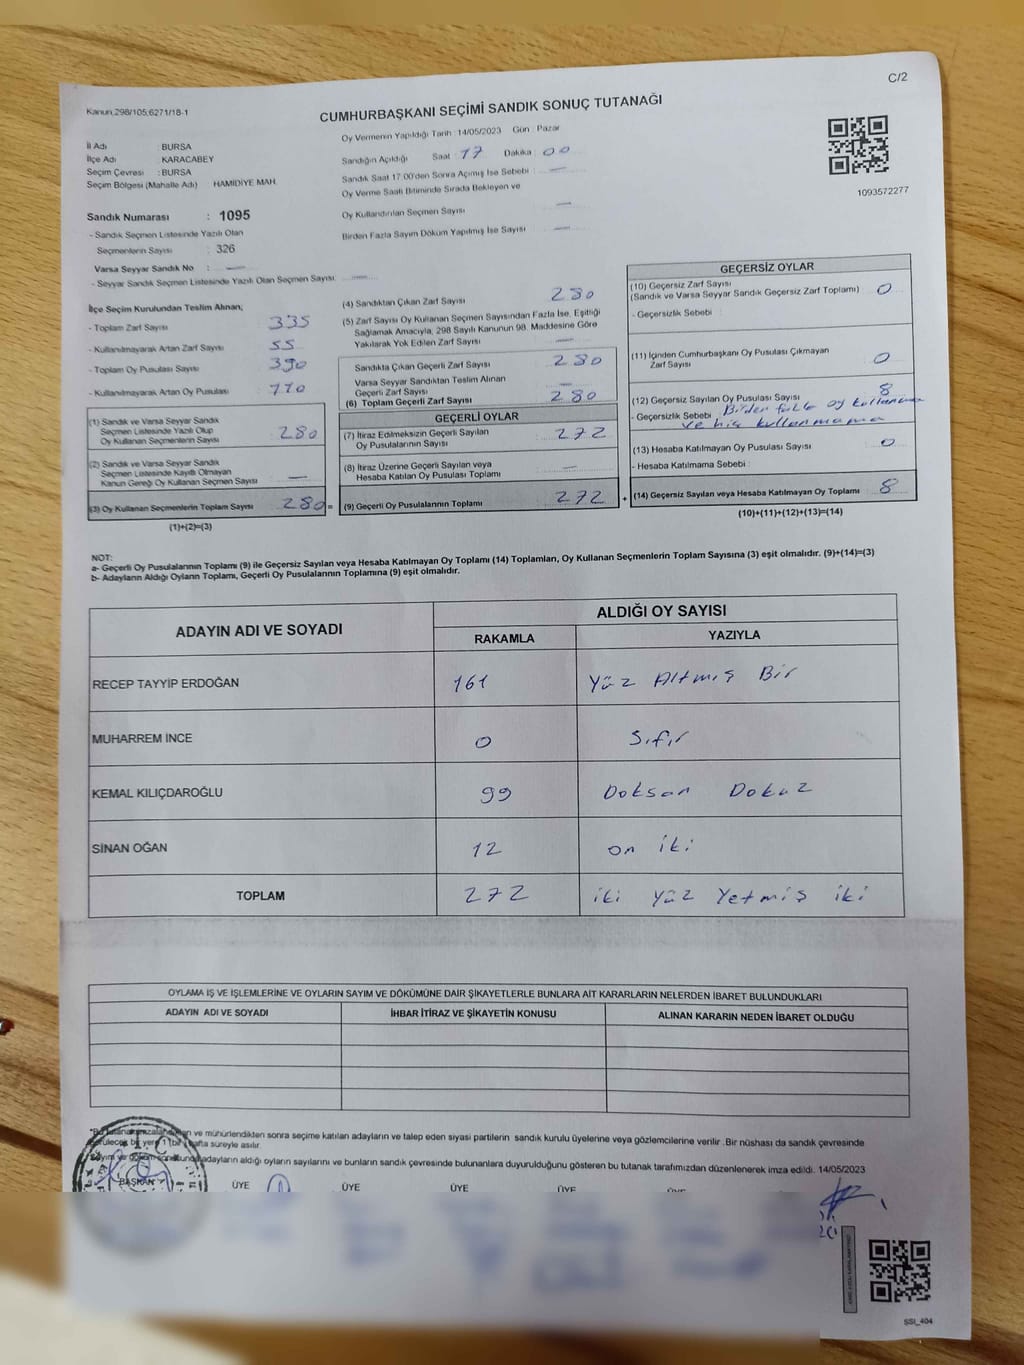 C/2
Kanun:298/105;6271/18-1
CUMHURBAŞKANI SEÇİMİ SANDIK SONUÇ TUTANAĞI
İl Adı : BURSA
İlçe Adı : KARACABEY
Seçim Çevresi : BURSA
Seçim Bölgesi (Mahalle Adı) HAMİDİYE MAH.
Sandık Numarası : 1095
- Sandık Seçmen Listesinde Yazılı Olan
Seçmenlerin Sayısı : 326
Varsa Seyyar Sandık No : —
- Seyyar Sandık Seçmen Listesinde Yazılı Olan Seçmen Sayısı: —
Oy Vermenin Yapıldığı Tarih :14/05/2023 Gün : Pazar
Sandığın Açıldığı Saat : 17 Dakika : 00
Sandık Saat 17.00'den Sonra Açılmış İse Sebebi : —
Oy Verme Saati Bitiminde Sırada Bekleyen ve
Oy Kullandırılan Seçmen Sayısı —
Birden Fazla Sayım Döküm Yapılmış İse Sayısı —
1093572277
İlçe Seçim Kurulundan Teslim Alınan;
- Toplam Zarf Sayısı 335
- Kullanılmayarak Artan Zarf Sayısı 55
- Toplam Oy Pusulası Sayısı 390
- Kullanılmayarak Artan Oy Pusulası 110
(1) Sandık ve Varsa Seyyar Sandık
Seçmen Listesinde Yazılı Olup
Oy Kullanan Seçmenlerin Sayısı 280
(2) Sandık ve Varsa Seyyar Sandık
Seçmen Listesinde Kayıtlı Olmayan
Kanun Gereği Oy Kullanan Seçmen Sayısı —
(3) Oy Kullanan Seçmenlerin Toplam Sayısı 280 =
(1)+(2)=(3)
(4) Sandıktan Çıkan Zarf Sayısı 280
(5) Zarf Sayısı Oy Kullanan Seçmen Sayısından Fazla İse, Eşitliği
Sağlamak Amacıyla, 298 Sayılı Kanunun 98. Maddesine Göre
Yakılarak Yok Edilen Zarf Sayısı —
Sandıkta Çıkan Geçerli Zarf Sayısı 280
Varsa Seyyar Sandıktan Teslim Alınan
Geçerli Zarf Sayısı —
(6) Toplam Geçerli Zarf Sayısı 280
GEÇERLİ OYLAR
(7) İtiraz Edilmeksizin Geçerli Sayılan
Oy Pusulalarının Sayısı 272
(8) İtiraz Üzerine Geçerli Sayılan veya
Hesaba Katılan Oy Pusulası Toplamı —
(9) Geçerli Oy Pusulalarının Toplamı 272 +
GEÇERSİZ OYLAR
(10) Geçersiz Zarf Sayısı
(Sandık ve Varsa Seyyar Sandık Geçersiz Zarf Toplamı) 0
- Geçersizlik Sebebi :
(11) İçinden Cumhurbaşkanı Oy Pusulası Çıkmayan
Zarf Sayısı 0
(12) Geçersiz Sayılan Oy Pusulası Sayısı 8
- Geçersizlik Sebebi : Birden fazla oy kullanma
ve hiç kullanmama
(13) Hesaba Katılmayan Oy Pusulası Sayısı 0
- Hesaba Katılmama Sebebi :
(14) Geçersiz Sayılan veya Hesaba Katılmayan Oy Toplamı 8
(10)+(11)+(12)+(13)=(14)
NOT:
a- Geçerli Oy Pusulalarının Toplamı (9) ile Geçersiz Sayılan veya Hesaba Katılmayan Oy Toplamı (14) Toplamları, Oy Kullanan Seçmenlerin Toplam Sayısına (3) eşit olmalıdır. (9)+(14)=(3)
b- Adayların Aldığı Oyların Toplamı, Geçerli Oy Pusulalarının Toplamına (9) eşit olmalıdır.
ADAYIN ADI VE SOYADI ALDIĞI OY SAYISI
RAKAMLA YAZIYLA
RECEP TAYYİP ERDOĞAN 161 Yüz Altmış Bir
MUHARREM İNCE 0 Sıfır
KEMAL KILIÇDAROĞLU 99 Doksan Dokuz
SİNAN OĞAN 12 on iki
TOPLAM 272 iki yüz Yetmiş iki
OYLAMA İŞ VE İŞLEMLERİNE VE OYLARIN SAYIM VE DÖKÜMÜNE DAİR ŞİKAYETLERLE BUNLARA AİT KARARLARIN NELERDEN İBARET BULUNDUKLARI
ADAYIN ADI VE SOYADI İHBAR İTİRAZ VE ŞİKAYETİN KONUSU ALINAN KARARIN NEDEN İBARET OLDUĞU
ve mühürlendikten sonra seçime katılan adayların ve talep eden siyasi partilerin sandık kurulu üyelerine veya gözlemcilerine verilir .Bir nüshası da sandık çevresinde
bir yere 1 (bir) hafta süreyle asılır.
adayların aldığı oyların sayılarını ve bunların sandık çevresinde bulunanlara duyurulduğunu gösteren bu tutanak tarafımızdan düzenlenerek imza edildi. 14/05/2023
BAŞKAN ÜYE ÜYE ÜYE ÜYE
SSI_404